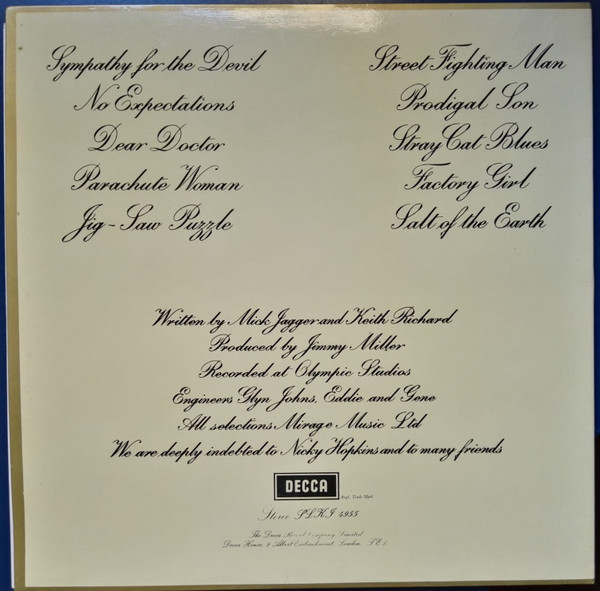 Sympathy for the Devil
No Expectations
Dear Doctor
Parachute Woman
Jig-Saw Puzzle
Street Fighting Man
Prodigal Son
Stray Cat Blues
Factory Girl
Salt of the Earth
Written by Mick Jagger and Keith Richard
Produced by Jimmy Miller
Recorded at Olympic Studios
Engineers Glyn Johns, Eddie and Gene
All selections Mirage Music Ltd
We are deeply indebted to Nicky Hopkins and to many friends
DECCA
Regd. Trade Mark
Stereo SLKI 4955
The Decca Record Company Limited
Decca House, 9 Albert Embankment, London, SE1